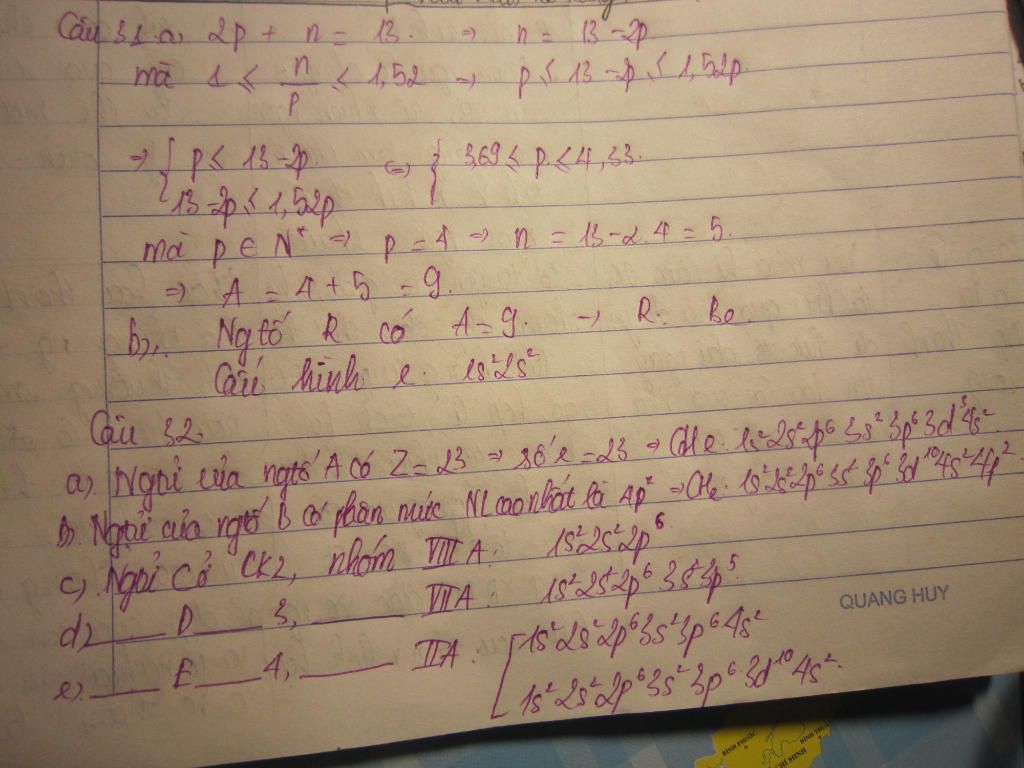 Câu 31. a, 2p + n = 13. => n = 13-2p
mà 1 ≤ n/p ≤ 1,52 => p ≤ 13-2p ≤ 1,52p
=> { p ≤ 13-2p <=> { 3,69 ≤ p ≤ 4,33.
13-2p ≤ 1,52p
mà p ∈ N* => p = 4 => n = 13-2.4 = 5.
=> A = 4+5 = 9.
b). Ngtố R có A=9. -> R: Be
Cấu hình e: 1s²2s²
Câu 32.
a). Ngtử của ngtố A có Z=23 => số e=23 => CHe: 1s²2s²2p⁶3s²3p⁶3d³4s²
b. Ngtử của ngtố B có phân mức NL cao nhất là 4p² => CHe: 1s²2s²2p⁶3s²3p⁶3d¹⁰4s²4p²
c). Ngtử C ở CK2, nhóm VIIIA: 1s²2s²2p⁶
d) D 3, VIIA: 1s²2s²2p⁶3s²3p⁵
e). E 4, IIA: [ 1s²2s²2p⁶3s²3p⁶4s²
1s²2s²2p⁶3s²3p⁶3d¹⁰4s²
QUANG HUY
BÌNH PHƯỚC
CHÍ MINH